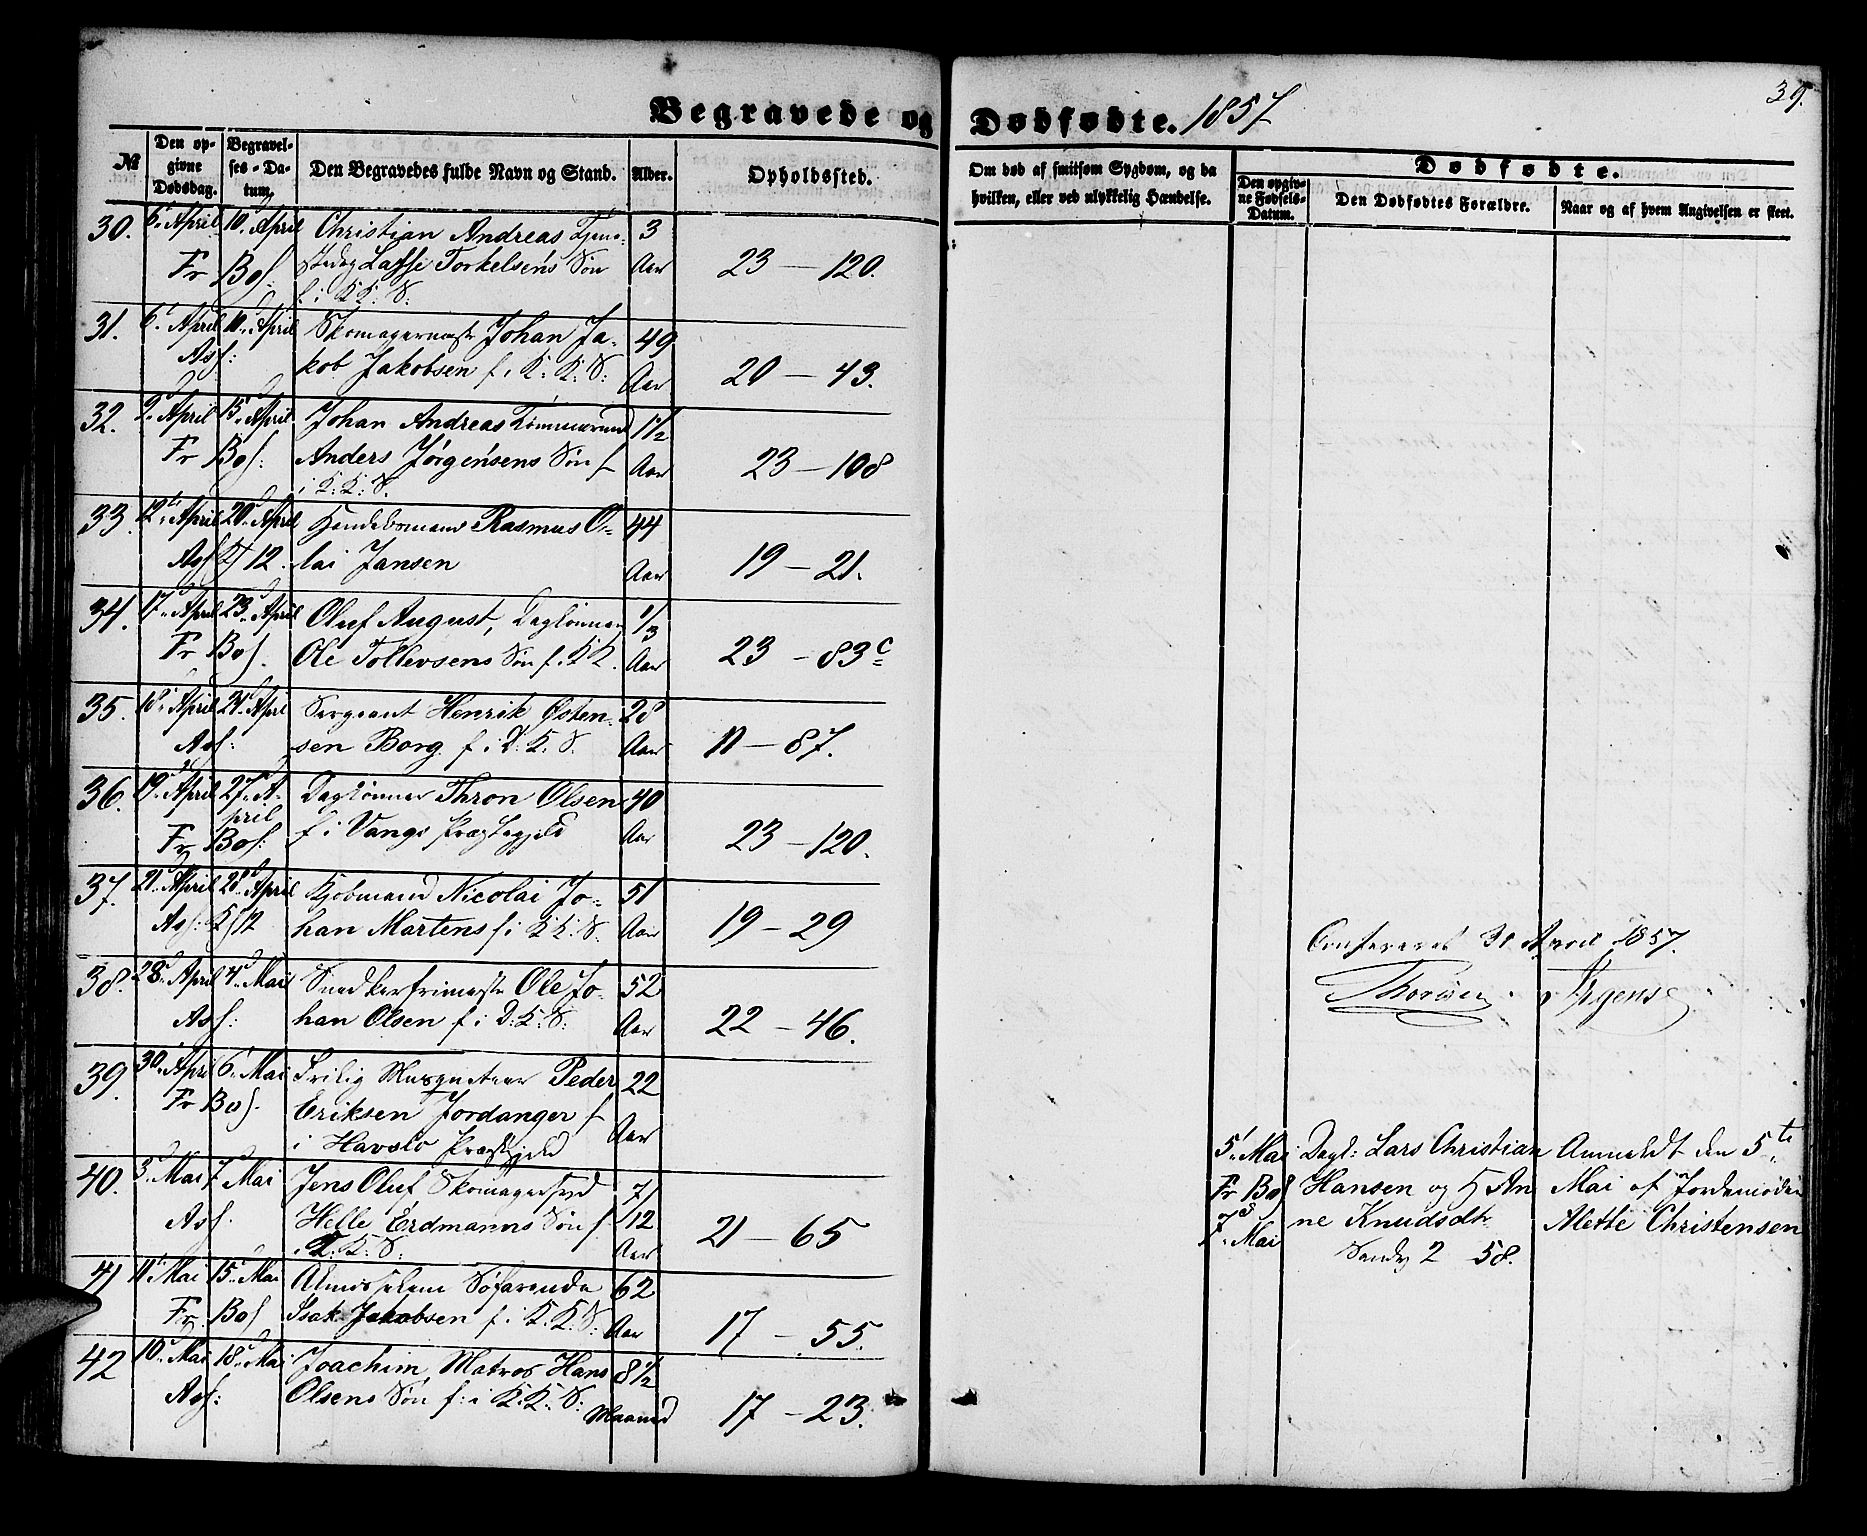 Begravede og Dødfødte. 1857
39.
№
Den opgivne Dødsdag.
Begravelses-Datum.
Den Begravedes fulde Navn og Stand.
Alder.
Opholdssted.
Om død af smitsom Sygdom, og da hvilken, eller ved ulykkelig Hændelse.
Dødfødte.
Den opgivne Fødsels-Datum.
Den Dødfødtes Forældre.
Naar og af hvem Angivelsen er skeet.
30. 6. April 10. April Christian Andreas 3
Lasse Torkelsens Søn Aar 23 – 120.
Fr Bos: f. i K: K: S:
31. 6. April 10. April Skomagermestr Johan Ja- 49
Asf: kob Jakobsen f. i K: K: S: Aar 20 – 43.
32. 9. April 15. April Johan Andreas Tømmermd 1½
Fr Bos: Anders Jørgensens Søn f. Aar 23 – 108
i K: K: S.
33. 12te April 20. April Handelsmand Rasmus O- 44
Asf Kf 12. lai Jansen Aar 19 – 21.
34. 17. April 23. April Oluf August, Daglønner 1/3
Fr Bos. Ole Tollevsens Søn f. i K K. Aar 23 – 83c
35. 18. April 24. April Sergeant Henrik Østen- 28
Asf: sen Borg. f. i D: K: S. Aar 11 – 87.
36. 19. April 27. A- Daglønner Thron Olsen 40
pril f. i Vangs Præstegjeld Aar 23 – 120.
Fr Bos:
37. 21. April 28. April Kjøbmand Nicolai Jo- 51
Asf: Kf 12 han Martens f. i K K: S: Aar 19 – 29
38. 28. April 4. Mai Snedkerfrimestr Ole Jo- 52
Asf: han Olsen f. i D: K: S: Aar 22 – 46.
39. 30. April 6. Mai Frilig Musqueteer Peder 22
Fr Bos. Eriksen Jordanger f. Aar
i Havslo Præstgjeld
40. 3. Mai 7. Mai Jens Oluf Skomagersvd 7/12
Asf. Helle Erdmanns Søn f. Aar 21 – 65
i K: K: S:
41 11. Mai 15. Mai Almisselem Søfarende 62
Fr. Bos Isak Jakobsen f. i K. K. S: Aar 17 – 55.
42 10. Mai 18. Mai Joachim, Matros Hans 8½
Asf: Olsens Søn f: i K. K: S: Maaned 17 – 23.
Confereret 30 April 1857.
Thorsen. Irgens
5. Mai Dagl: Lars Christian Anmeldt den 5te
Fr Bos Hansen og H An Mai af Jordemoder
7. Mai ne Knudsdtr Alette Christensen
Sandv 2 58.